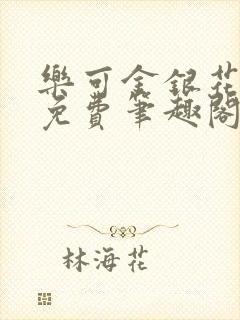 樂可金銀花
免費筆趣閣
林海花